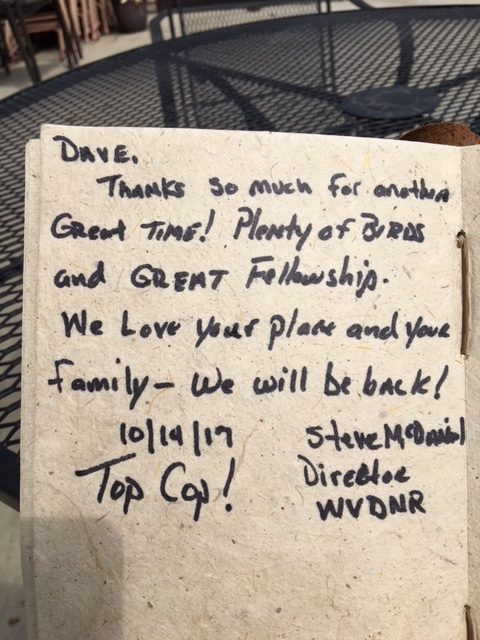 DAVE,
THANKS so much for another
Great TIME! Plenty of BIRDS
and GREAT Fellowship.
We Love your place and your
family - We will be back!
10/14/17 Steve McDaniel
Top Cop! Director
WVDNR